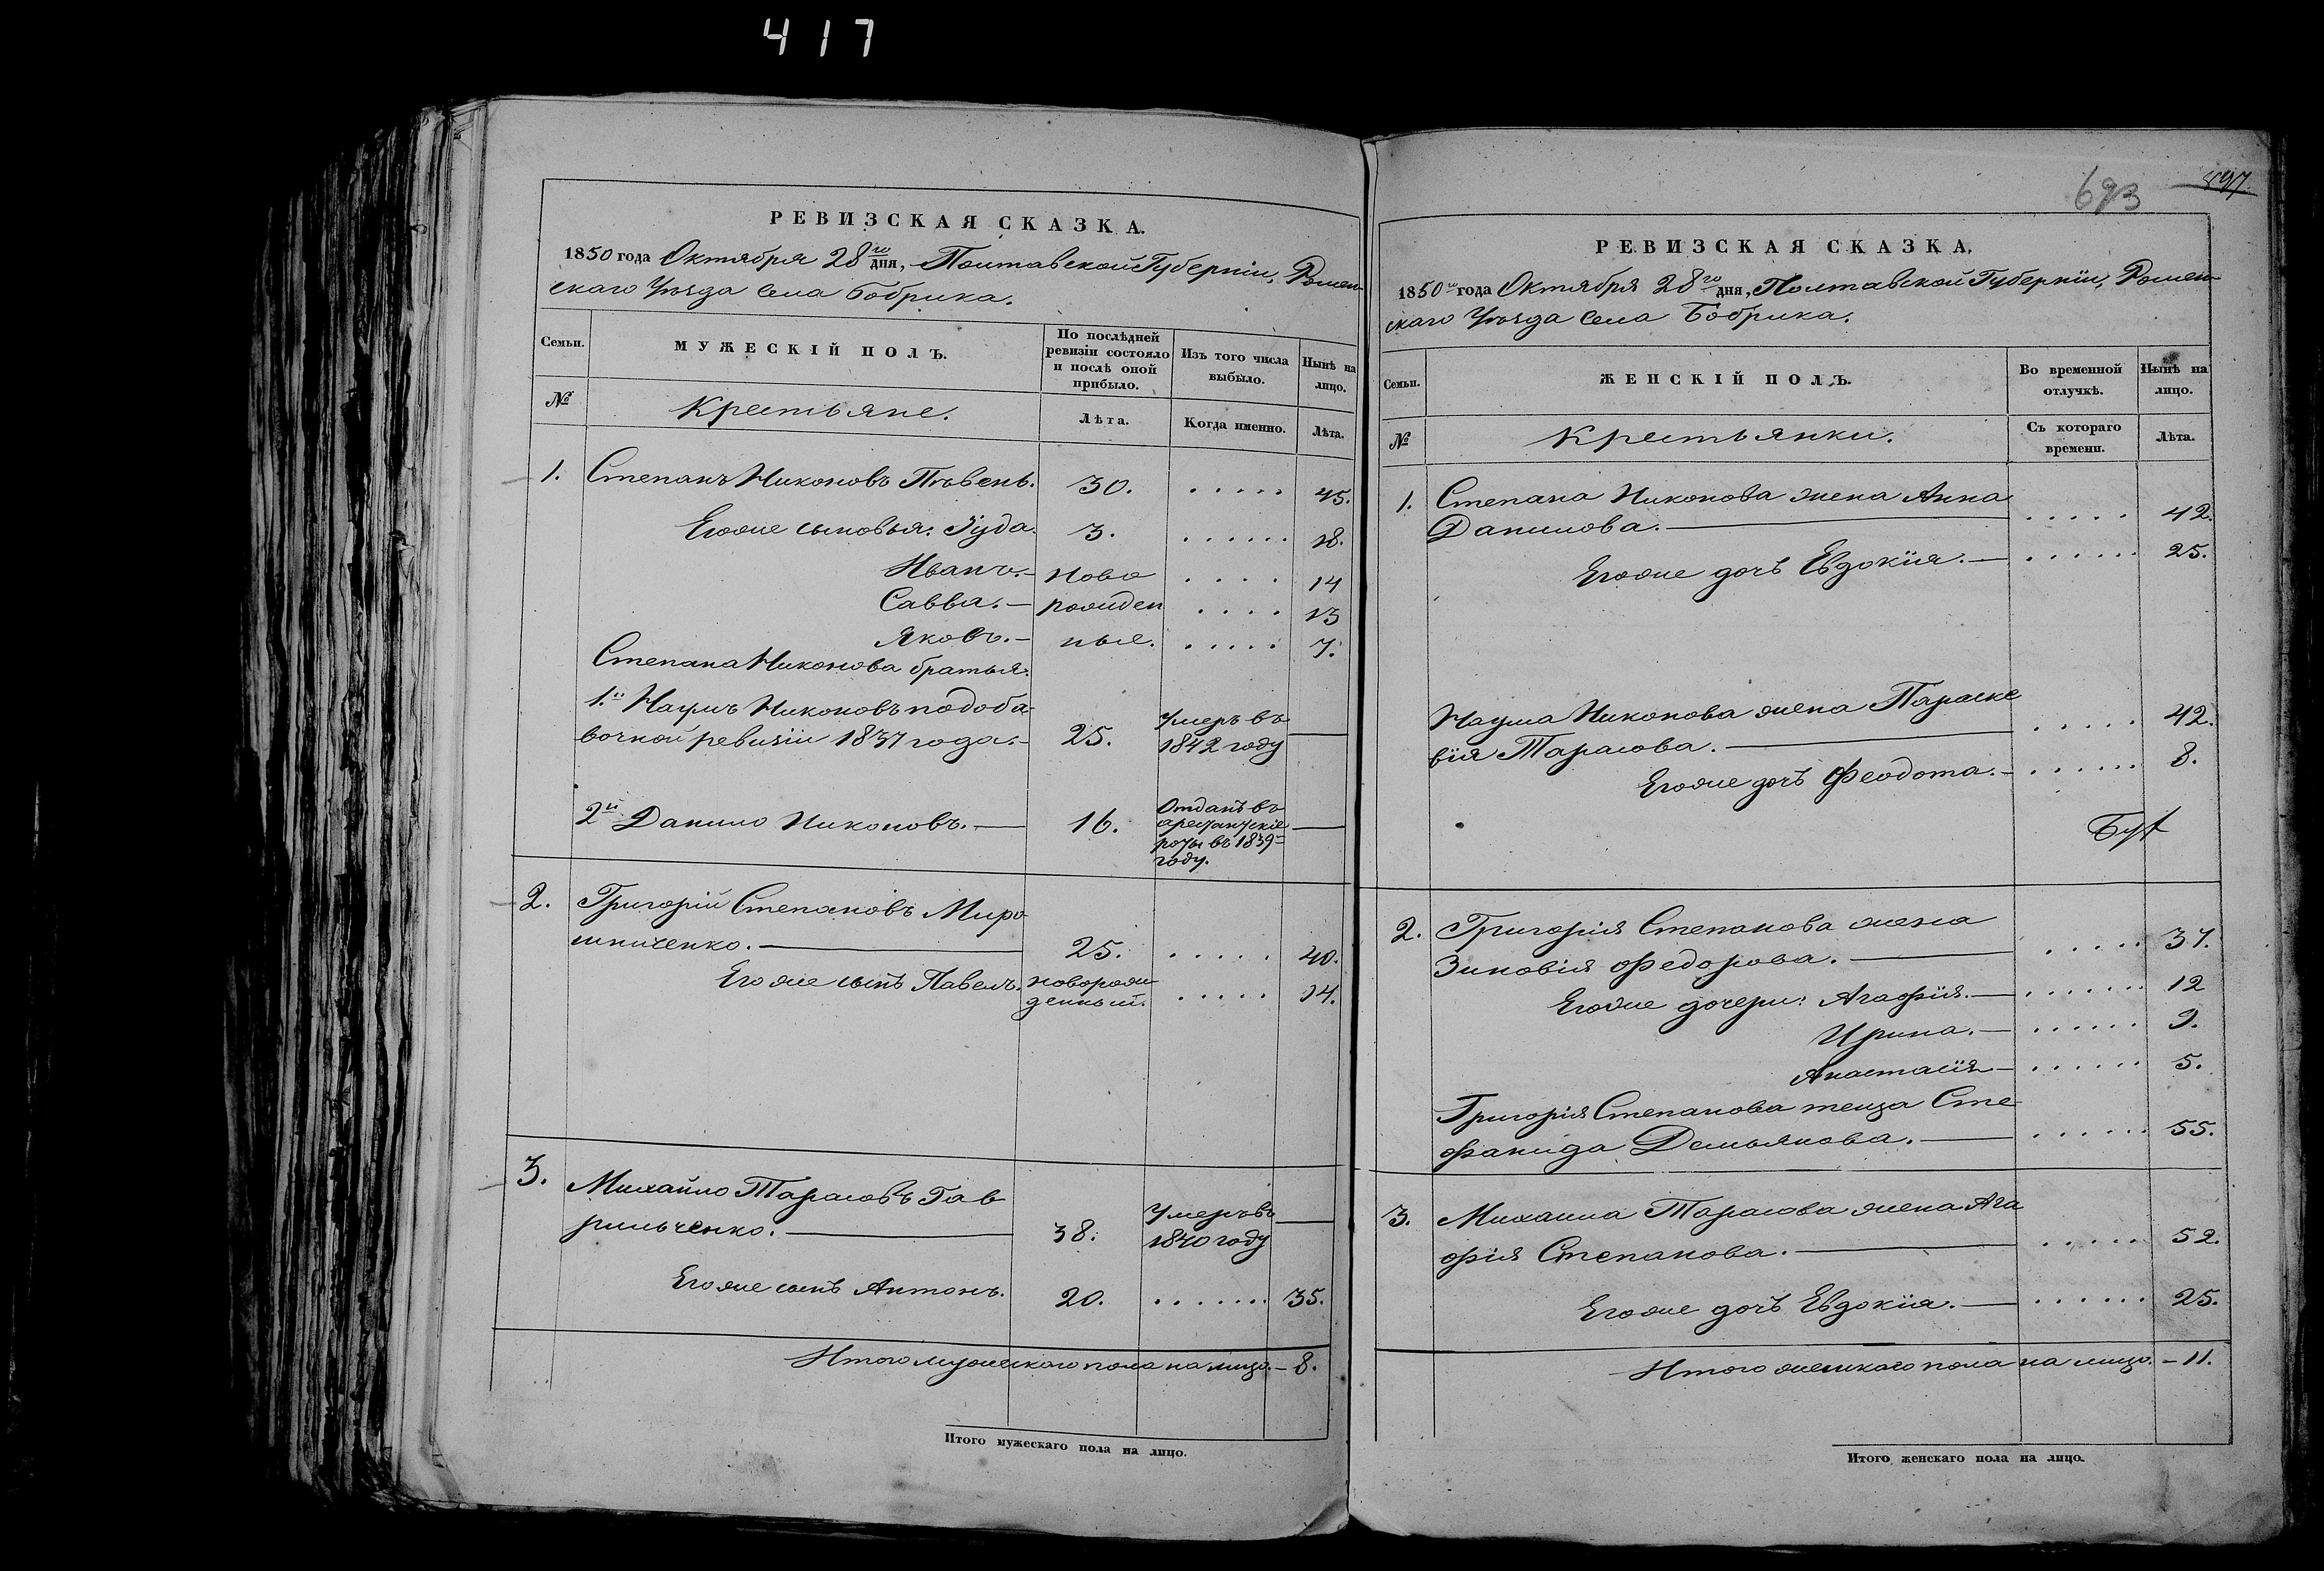 417
РЕВИЗСКАЯ СКАЗКА.
1850 года Октября 28го дня, Полтавской Губерніи, Ромен-
скаго Уѣзда Села Бобрика.
Семьи.
МУЖЕСКІЙ ПОЛЪ.
По послѣдней
ревизіи состояло
и послѣ оной
прибыло.
Изъ того числа
выбыло.
Нынѣ на
лицо.
№
Крестьяне.
Лѣта.
Когда именно.
Лѣта.
1. Степанъ Никоновъ Пѣвень. 30. ..... 45.
Егоже сыновья: Іуда. 3. ...... 18.
Иванъ.- ново .... 14
Савва.- рожден .... 13
Яковъ.- ные. ..... 7.
Степана Никонова братья:
1й Наумъ Никоновъ подоба-
вочной ревизіи 1837 года.- 25. Умеръ въ 1842 году —
2й Данило Никоновъ.— 16. Отданъ въ
арестантскіе —
роты въ 1839м
году.
2. Григорій Степановъ Миро
шниченко.— 25. ..... 40.
Егоже сынъ Павелъ. новорож
денный. ..... 14.
3. Михайло Тарасовъ Гав
рильченко.— 38. Умеръ въ 1840 году —
Егоже сынъ Антонъ. 20. ....... 35.
Итого мужескаго пола на лицо.- 8.
Итого мужескаго пола на лицо.
693 597
РЕВИЗСКАЯ СКАЗКА.
1850го года Октября 28го дня, Полтавской Губерніи, Ромен-
скаго Уѣзда Села Бобрика.
Семьи.
ЖЕНСКІЙ ПОЛЪ.
Во временной
отлучкѣ.
Нынѣ на
лицо.
№
Крестьянки.
Съ котораго
времени.
Лѣта.
1. Степана Никонова жена Анна
Данилова.— ..... 42.
Егоже дочь Евдокія.— ...... 25.
Наума Никонова жена Параске
вія Тарасова.— ..... 42.
Егоже дочь Феодота.- ...... 8.
2. Григорія Степанова жена
Зиновія Федорова.— ..... 37.
Егоже дочери: Агафія.— ....... 12
Ирина.— ...... 9.
Анастасія— ...... 5.
Григорія Степанова теща Сте
фанида Демьянова.— ...... 55.
3. Михаила Тарасова жена Ага
фія Степанова.— ..... 52.
Егоже дочь Евдокія.— ...... 25.
Итого женскаго пола на лицо.- 11.
Итого женскаго пола на лицо.